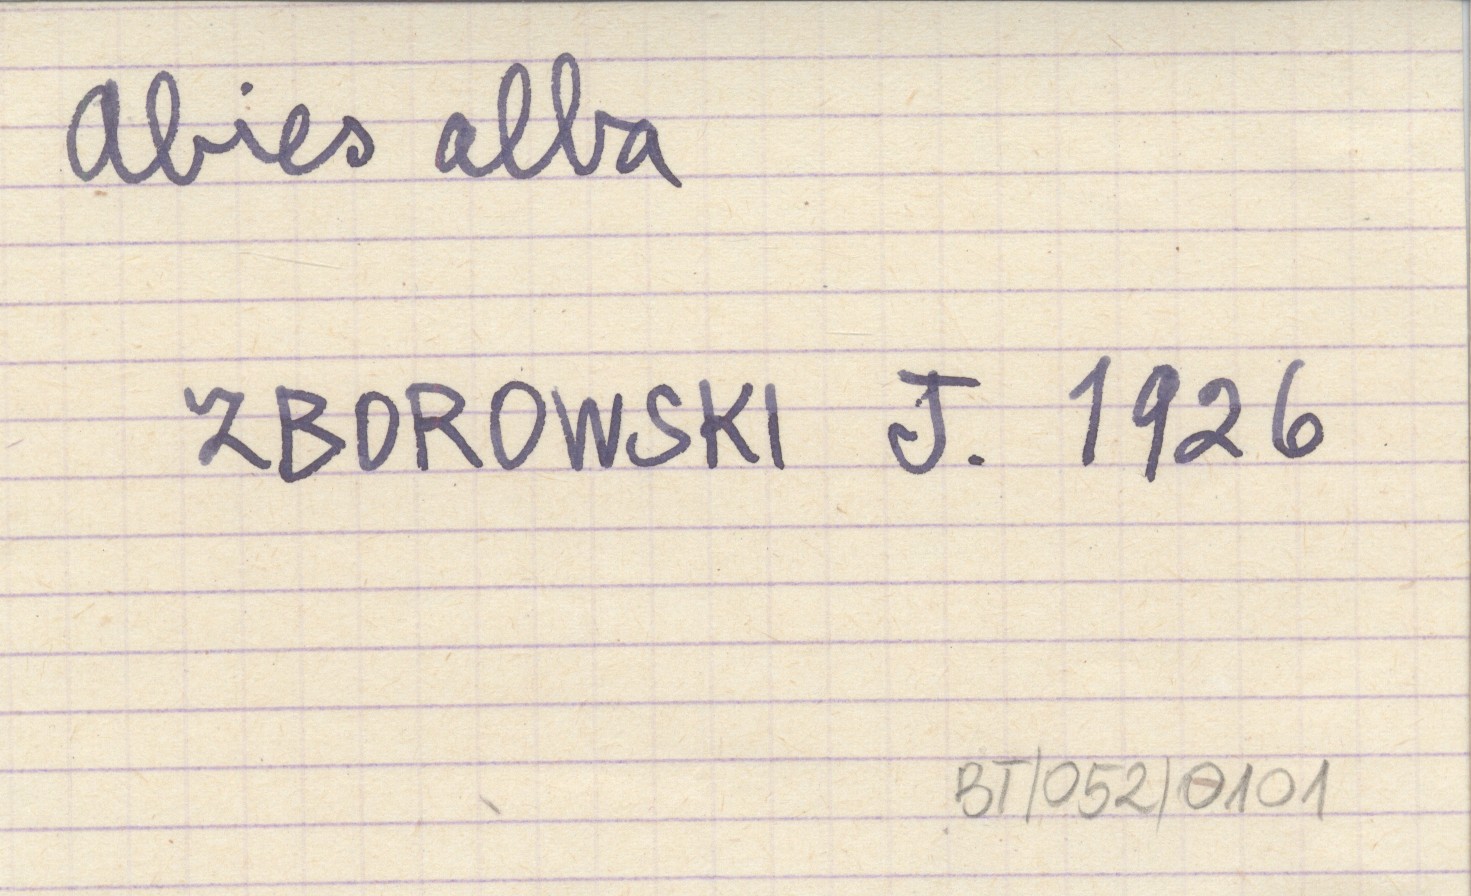 Abies alba
ZBOROWSKI J. 1926
BT/052/0101